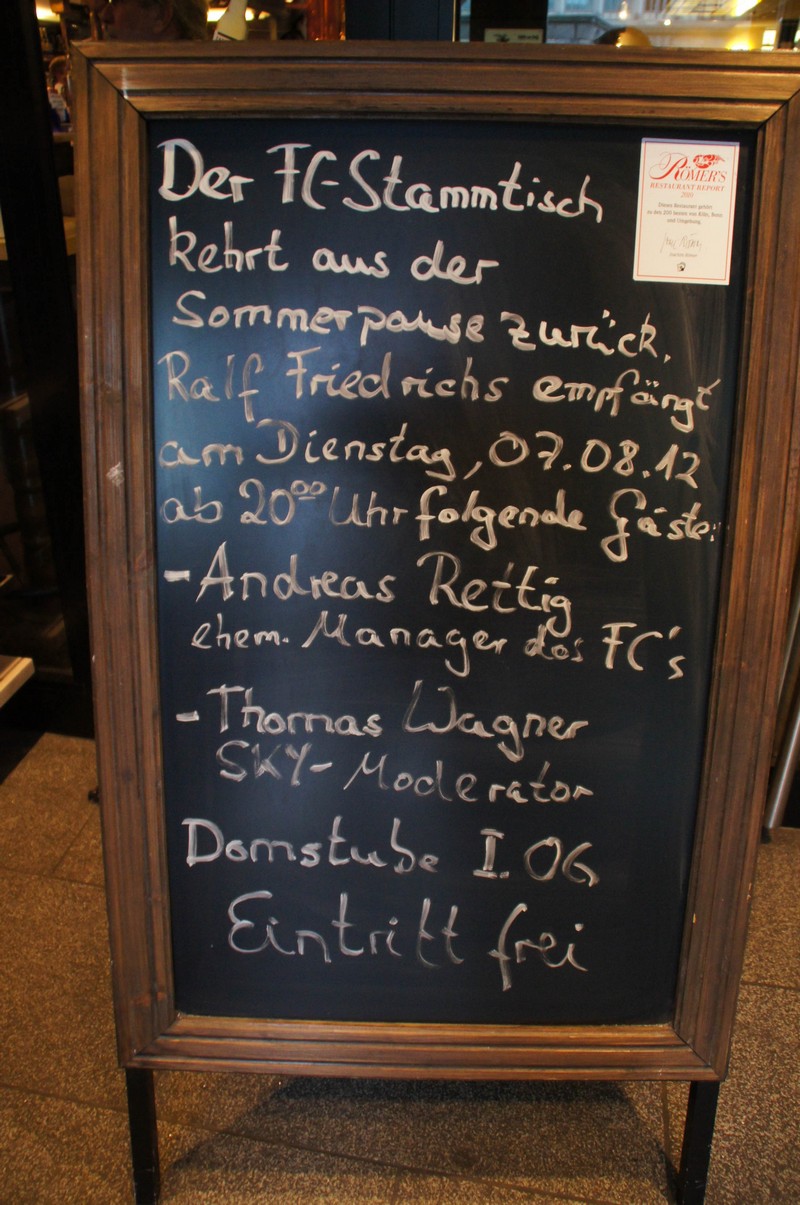 Der FC-Stammtisch
kehrt aus der
Sommerpause zurück.
Ralf Friedrichs empfängt
am Dienstag, 07.08.12
ab 20 00 Uhr folgende Gäste:
- Andreas Rettig
ehem. Manager des FC's
- Thomas Wagner
SKY- Moderator
Domstube I. OG
Eintritt frei
RÖMER'S
RESTAURANT REPORT
Dieses Restaurant gehört
zu den 200 besten von Köln, Bonn
und Umgebung.